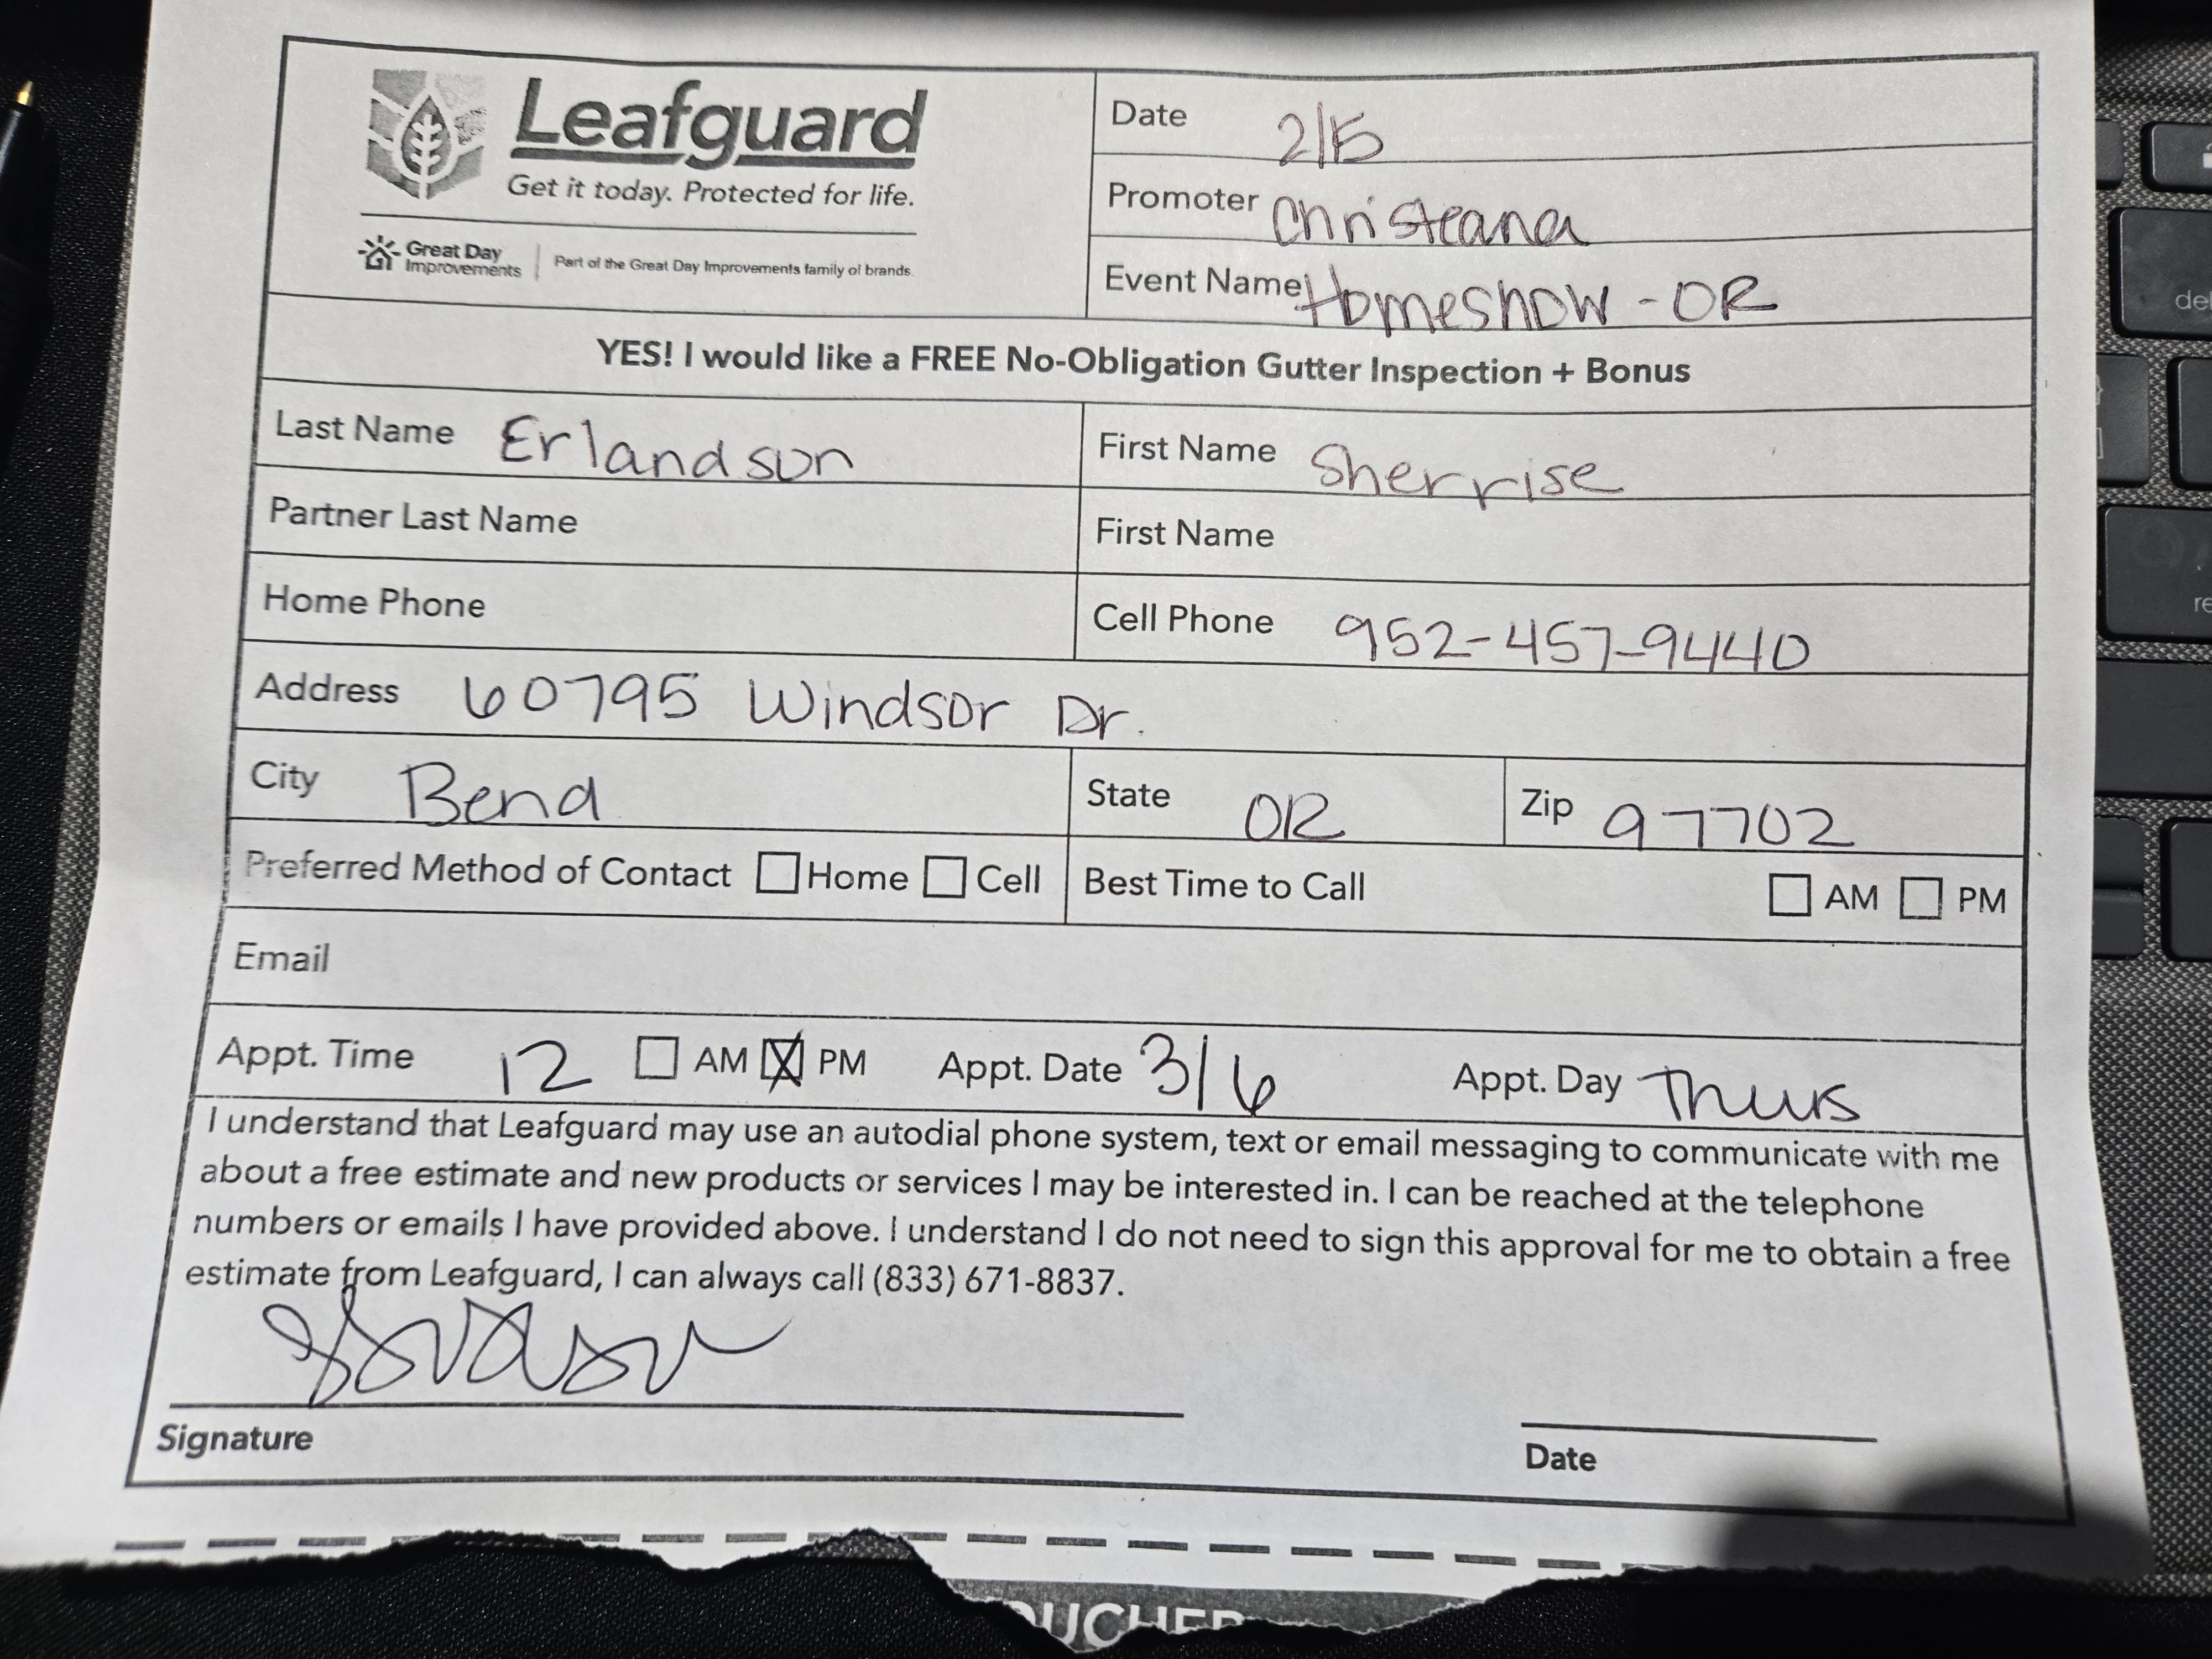 Leafguard
Get it today. Protected for life.
Great Day Improvements | Part of the Great Day Improvements family of brands.
Date 2/15
Promoter Christeana
Event Name Homeshow - OR
YES! I would like a FREE No-Obligation Gutter Inspection + Bonus
Last Name Erlandson First Name Sherrise
Partner Last Name First Name
Home Phone Cell Phone 952-457-9440
Address 60795 Windsor Dr.
City Bend State OR Zip 97702
Preferred Method of Contact ☐ Home ☐ Cell Best Time to Call ☐ AM ☐ PM
Email
Appt. Time 12 ☐ AM ☒ PM Appt. Date 3/6 Appt. Day Thurs
I understand that Leafguard may use an autodial phone system, text or email messaging to communicate with me
about a free estimate and new products or services I may be interested in. I can be reached at the telephone
numbers or emails I have provided above. I understand I do not need to sign this approval for me to obtain a free
estimate from Leafguard, I can always call (833) 671-8837.
Signature Date